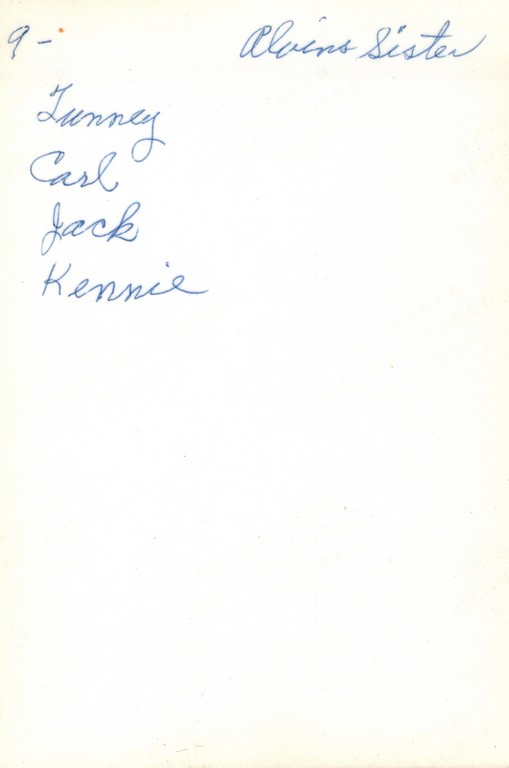 9- Alvins Sister
Tunney
Carl
Jack
Kennie